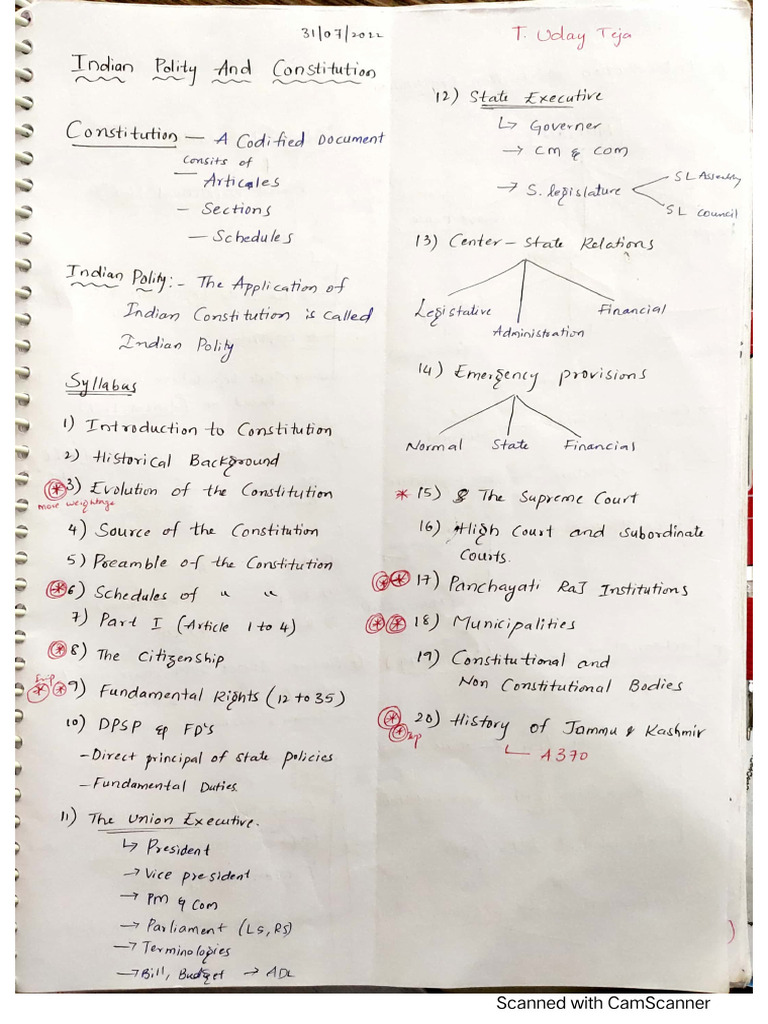 31/07/2022
T. Uday Teja
Indian Polity And Constitution
Constitution — A Codified Document
Consits of
— Articales
— Sections
— Schedules
Indian Polity:- The Application of
Indian Constitution is called
Indian Polity
Syllabus
1) Introduction to Constitution
2) Historical Background
3) Evolution of the Constitution
more weightage
4) Source of the Constitution
5) Preamble of the Constitution
6) Schedules of " "
7) Part I (Article 1 to 4)
8) The Citizenship
Imp
9) Fundamental Rights (12 to 35)
10) DPSP & FD's
- Direct principal of state policies
- Fundamental Duties.
11) The Union Executive.
↳ President
→ Vice president
→ PM & Com
→ Parliament (LS, RS)
→ Terminologies
→ Bill, Budget → ADL
12) State Executive
↳ Governer
→ CM & COM
→ S. legislature
SL Assembly
SL Council
13) Center – State Relations
Legistative
Administration
Financial
14) Emergency provisions
Normal State Financial
* 15) The Supreme Court
16) High Court and Subordinate
Courts.
17) Panchayati RaJ Institutions
18) Municipalities
19) Constitutional and
Non Constitutional Bodies
20) History of Jammu & Kashmir
Imp
↳ A370
Scanned with CamScanner